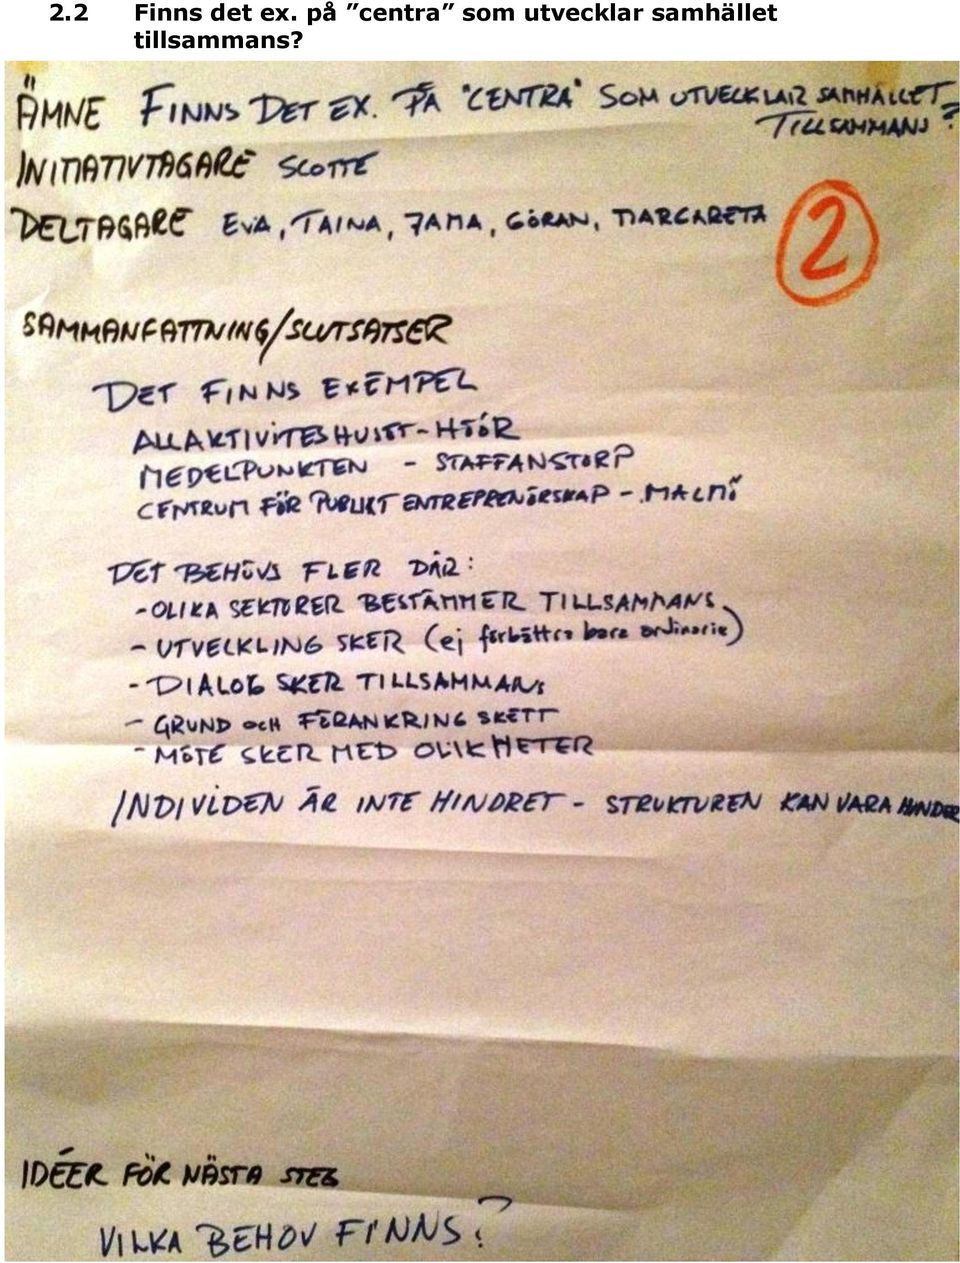 2.2 Finns det ex. på ”centra” som utvecklar samhället
tillsammans?
ÄMNE FINNS DET EX. PÅ "CENTRA" SOM UTVECKLAR SAMHÄLLET
TILLSAMMANS?
INITIATIVTAGARE SCOTTE
DELTAGARE EVA, TAINA, JAMA, GÖRAN, MARGARETA
2
SAMMANFATTNING/SLUTSATSER
DET FINNS EXEMPEL
ALLAKTIVITESHUSET-HÖÖR
MEDELPUNKTEN - STAFFANSTORP
CENTRUM FÖR PUBLIKT ENTREPRENÖRSKAP - MALMÖ
DET BEHÖVS FLER DÄR:
- OLIKA SEKTORER BESTÄMMER TILLSAMMANS
- UTVECKLING SKER (ej förbättra bara ordinarie)
- DIALOG SKER TILLSAMMANS
- GRUND OCH FÖRANKRING SKETT
- MÖTE SKER MED OLIKHETER
INDIVIDEN ÄR INTE HINDRET - STRUKTUREN KAN VARA HINDER
IDÉER FÖR NÄSTA STEG
VILKA BEHOV FINNS?